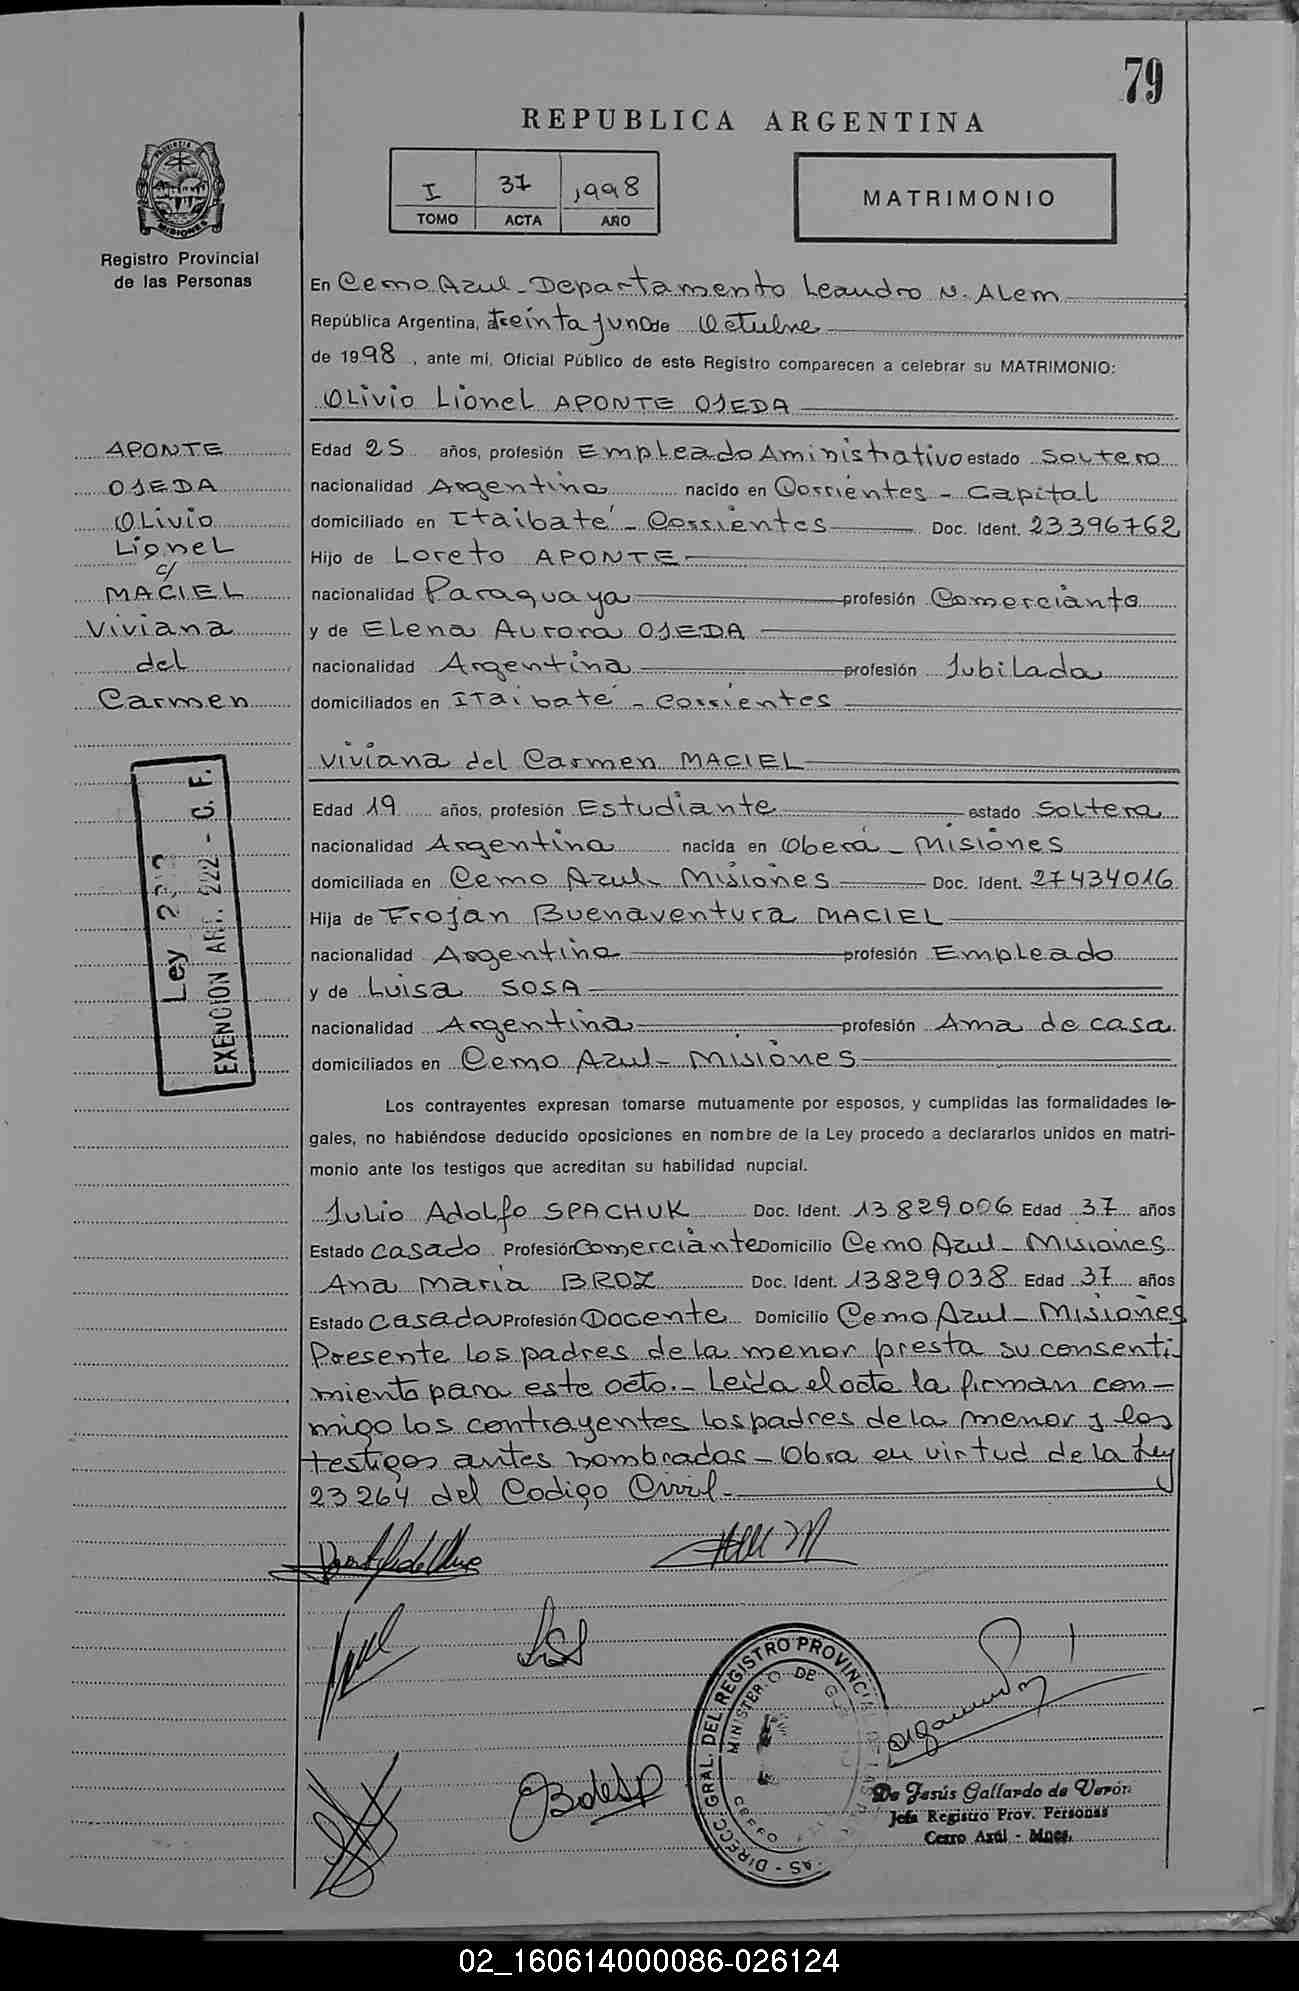 79
REPUBLICA ARGENTINA
I 37 1998
TOMO ACTA AÑO
MATRIMONIO
PROVINCIA DE MISIONES
Registro Provincial
de las Personas
En Cerro Azul - Departamento Leandro N. Alem
República Argentina, treinta y uno de Octubre
de 1998, ante mi, Oficial Público de este Registro comparecen a celebrar su MATRIMONIO:
Olivio Lionel APONTE OJEDA
APONTE
OJEDA
Olivio
Lionel
c/
MACIEL
Viviana
del
Carmen
Edad 25 años, profesión Empleado Aministrativo estado Soltero
nacionalidad Argentina nacido en Corrientes - Capital
domiciliado en Itaibaté - Corrientes Doc. Ident. 23396762
Hijo de Loreto APONTE
nacionalidad Paraguaya profesión Comerciante
y de Elena Aurora OJEDA
nacionalidad Argentina profesión Jubilada
domiciliados en Itaibaté - Corrientes
Viviana del Carmen MACIEL
Edad 19 años, profesión Estudiante estado Soltera
nacionalidad Argentina nacida en Oberá - Misiones
domiciliada en Cerro Azul - Misiones Doc. Ident. 27434016
Hija de Trojan Buenaventura MACIEL
nacionalidad Argentina profesión Empleado
y de Luisa SOSA
nacionalidad Argentina profesión Ama de casa
domiciliados en Cerro Azul - Misiones
Ley
EXENCION ART. 222 - C. F.
Los contrayentes expresan tomarse mutuamente por esposos, y cumplidas las formalidades le-
gales, no habiéndose deducido oposiciones en nombre de la Ley procedo a declararlos unidos en matri-
monio ante los testigos que acreditan su habilidad nupcial.
Julio Adolfo SPACHUK Doc. Ident. 13.829.006 Edad 37 años
Estado Casado Profesión Comerciante Domicilio Cerro Azul - Misiones
Ana Maria BROZ Doc. Ident. 13829038 Edad 37 años
Estado Casada Profesión Docente Domicilio Cerro Azul - Misiones
Presente los padres de la menor presta su consenti-
miento para este acto.- Leida el acta la firman con-
migo los contrayentes los padres de la menor y los
testigos antes nombrados - Obra en virtud de la Ley
23264 del Codigo Civil.-
DIRECC. GRAL. DEL REGISTRO PROVINCIAL DE LAS PERSONAS
MINISTERIO DE
CERRO
De Jesús Gallardo de Verón
Jefa Registro Prov. Personas
Cerro Azúl - Mnes.
02_160614000086-026124